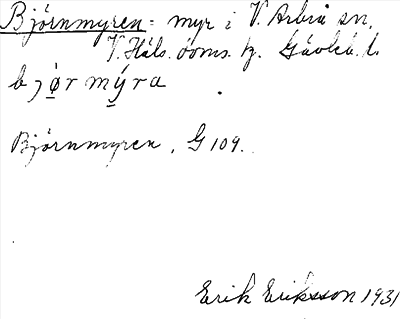 Björnmyren = myr i V. Arbrå sn.
V. Häls. doms. hg. Gävleb. l.
bjørmýra
Björnmyren, G 109.
Erik Eriksson 1931